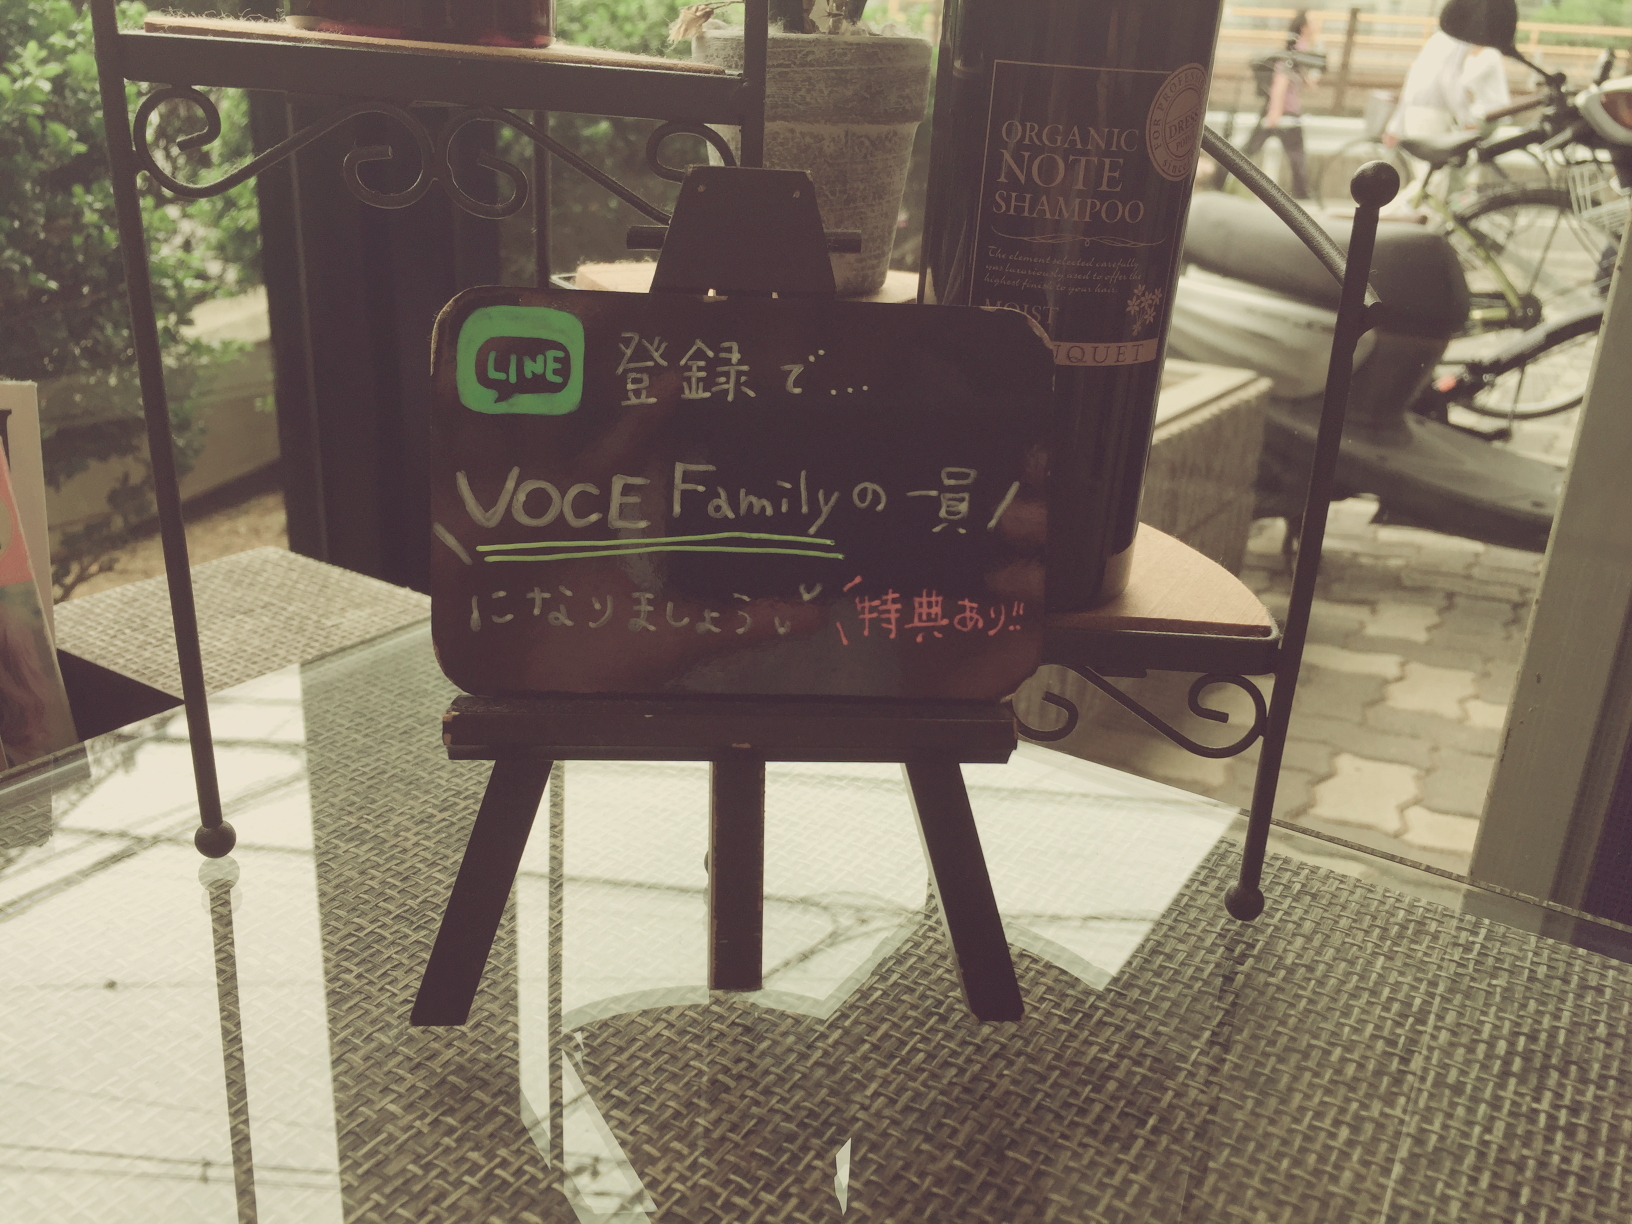 LINE 登録で…
VOCE Familyの一員
になりましょう!
特典あり!!
ORGANIC
NOTE
SHAMPOO
The element selected carefully
was luxuriously used to offer the
highest finish to your hair.
MOIST
QUET
FOR PROFESSIONAL
DRESS